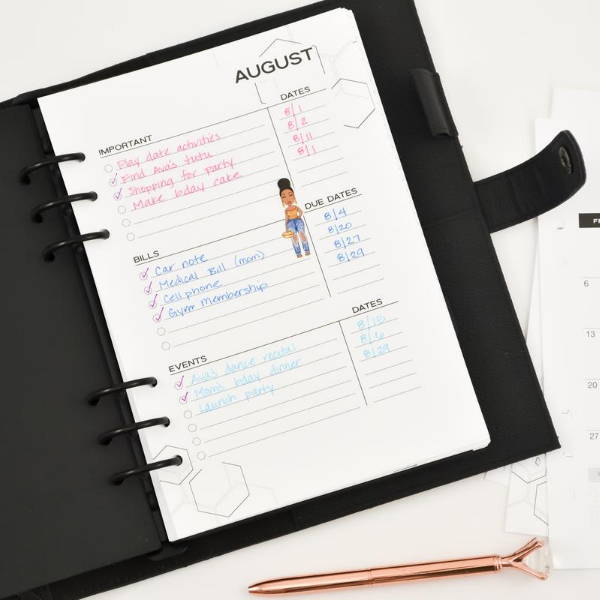 AUGUST
IMPORTANT DATES
Play date activities 8/1
Find Ava's tutu 8/2
Shopping for party 8/11
Make bday cake 8/1
BILLS DUE DATES
Car note 8/4
Medical Bill (mom) 8/20
Cell phone 8/27
Gym membership 8/29
EVENTS DATES
Ava's dance recital
Mom's bday dinner 8/6
Launch party 8/29
6
13
20
27